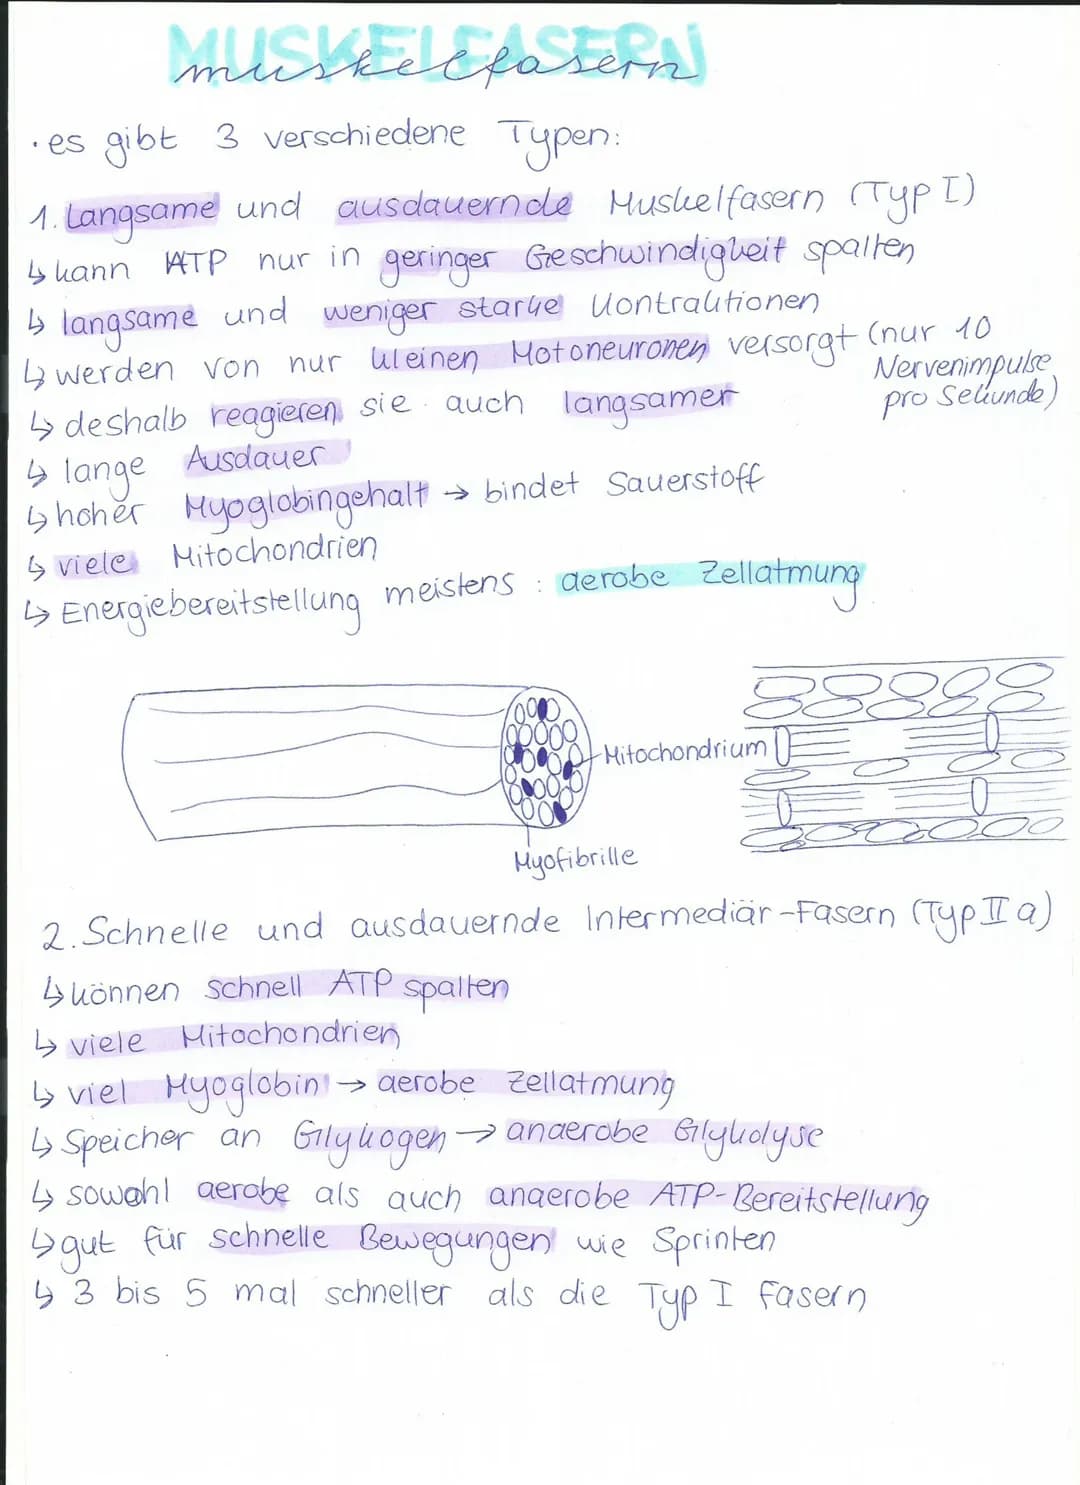 MUSKELFASERN
muskelfasern
· es gibt 3 verschiedene Typen:
1. Langsame und ausdauernde Muskelfasern (Typ I)
↳ kann ATP nur in geringer Geschwindigkeit spalten
↳ langsame und weniger starke Kontraktionen
↳ werden von nur kleinen Motoneuronen versorgt (nur 10
Nervenimpulse
pro Sekunde)
↳ deshalb reagieren sie auch langsamer
↳ lange Ausdauer
↳ hoher Myoglobingehalt → bindet Sauerstoff
↳ viele Mitochondrien
↳ Energiebereitstellung meistens : aerobe Zellatmung
Mitochondrium
Myofibrille
2. Schnelle und ausdauernde Intermediär-Fasern (Typ II a)
↳ können schnell ATP spalten
↳ viele Mitochondrien
↳ viel Myoglobin → aerobe Zellatmung
↳ Speicher an Glykogen → anaerobe Glykolyse
↳ sowohl aerobe als auch anaerobe ATP-Bereitstellung
↳ gut für schnelle Bewegungen wie Sprinten
↳ 3 bis 5 mal schneller als die Typ I Fasern